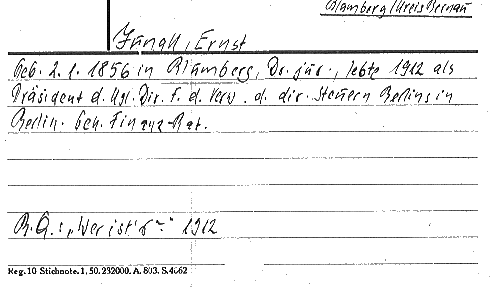 Blumberg/Kreis Bernau
Jungk, Ernst
Geb. 2.1.1856 in Blumberg, Dr. jur., lebte 1912 als
Präsident d. Kgl. Dir. f. d. Verw. d. dir. Steuern Berlins in
Berlin. Geh. Finanz-Rat.
B.Q.: „Wer ist's" 1912
Reg. 10 Stichnote. 1, 50. 232000. A. 803. S. 4662